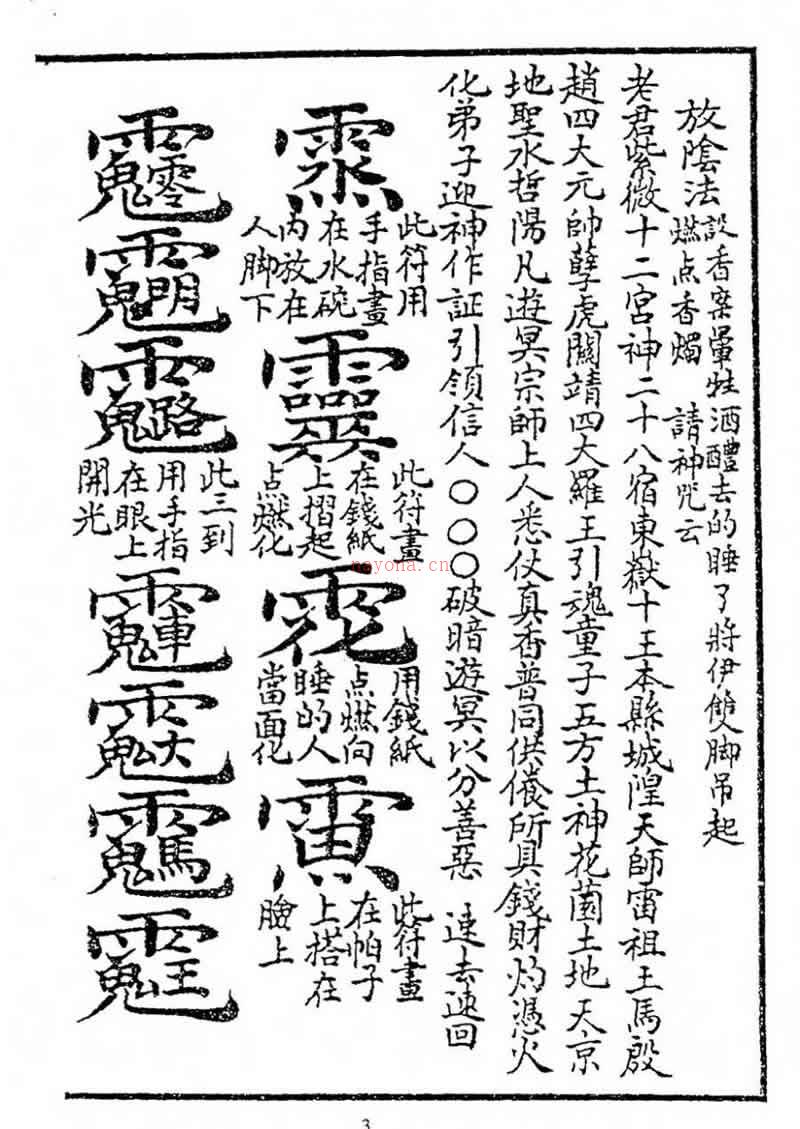 放陰法
設香案葷牲酒醴去的睡了將伊雙脚吊起
燃点香燭 請神咒云
老君紫微十二宮神二十八宿東嶽十王本縣城隍天師雷祖王馬殷
趙四大元帥孽虎關靖四大羅王引魂童子五方土神花園土地天京
地聖水哲陽凡遊冥宗師上人悉仗真香普同供養所具錢財灼憑火
化弟子迎神作証引領信人〇〇〇破暗遊冥以分善惡 速去速回
此符用
手指畫
在水碗
内放在
人脚下
靈
此符畫
在錢紙
上摺起
点燃化
用錢紙
点燃向
睡的人
當面化
此符畫
在帕子
上搭在
臉上
此三到
用手指
在眼上
開光
nayona.cn
3